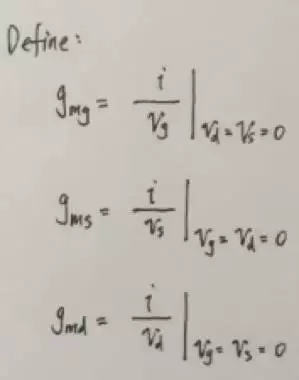 Define:
g_mg = i / v_g | v_d = v_s = 0
g_ms = i / v_s | v_g = v_d = 0
g_md = i / v_d | v_g = v_s = 0